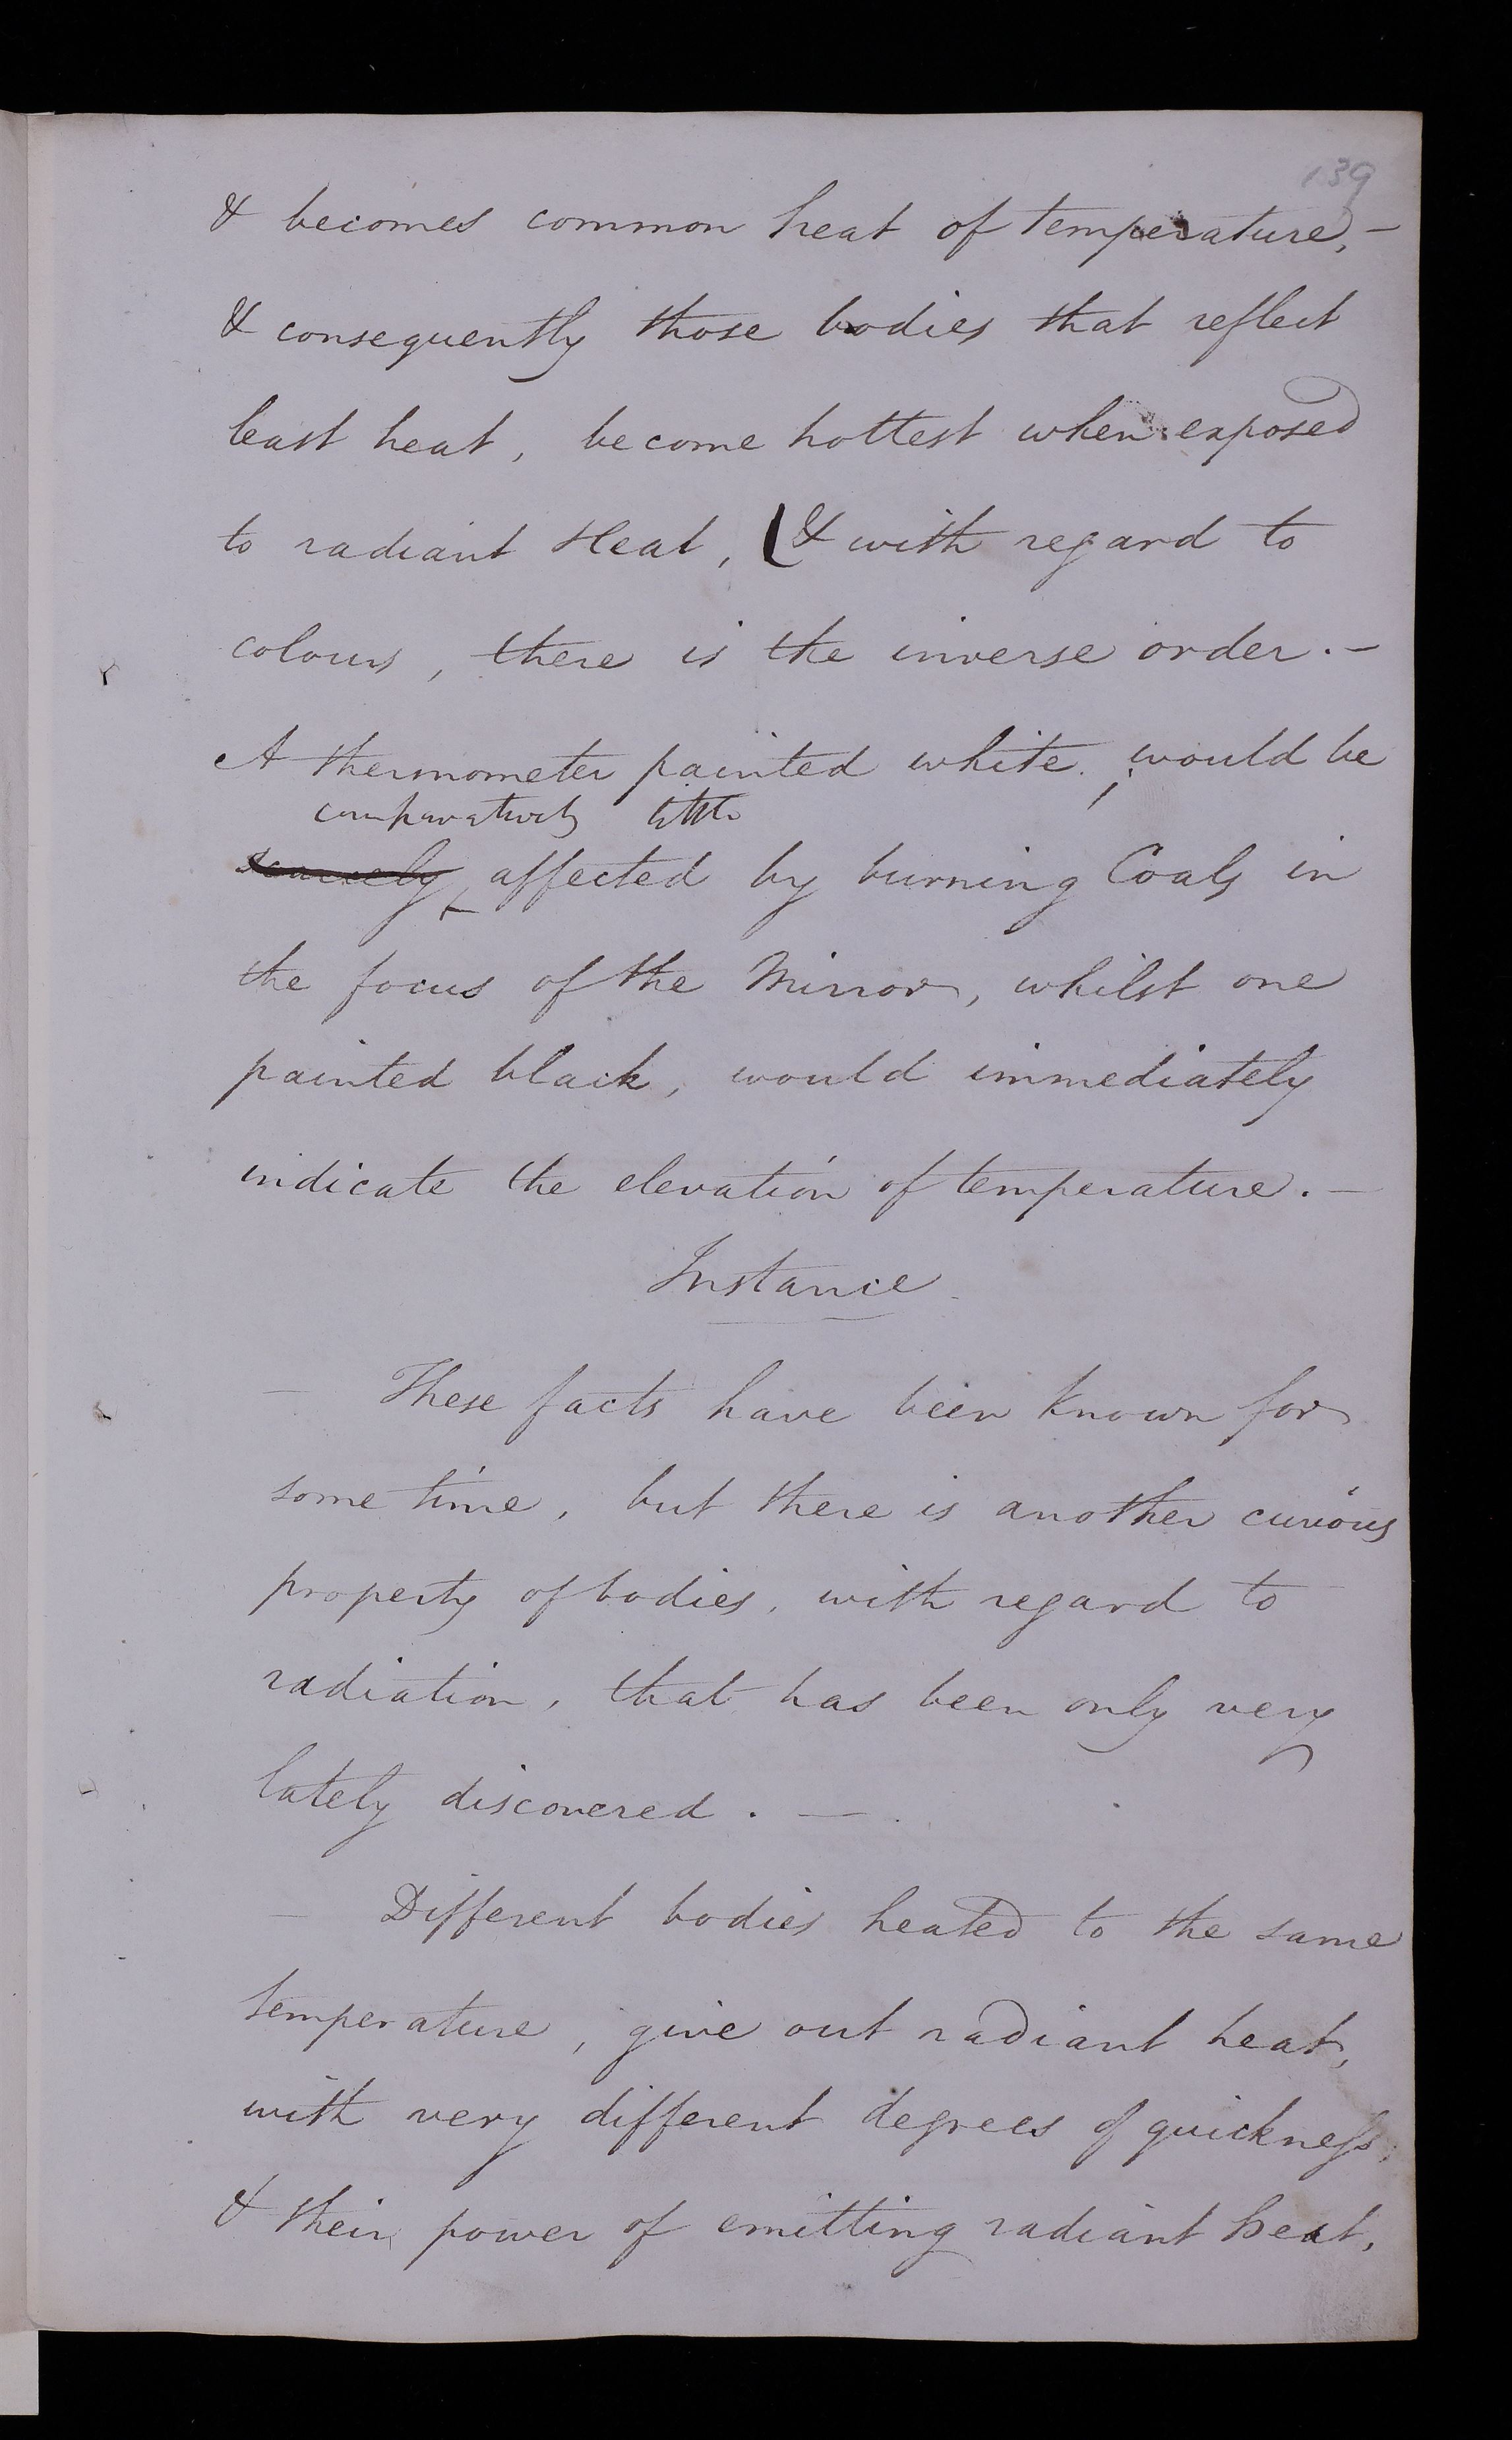 139
& becomes common heat of temperature, —
& consequently those bodies that reflect
least heat, become hottest when exposed
to radiant Heat, (& with regard to
colours, there is the inverse order. —
A thermometer painted white, would be
comparatively little
scarcely affected by burning Coals in
the focus of the Mirror, whilst one
painted black, would immediately
indicate the elevation of temperature. —
Instance
— These facts have been known for
some time, but there is another curious
property of bodies, with regard to
radiation, that has been only very
lately discovered. —
— Different bodies heated to the same
temperature, give out radiant heat,
with very different degrees of quickness,
& their power of emitting radiant heat,